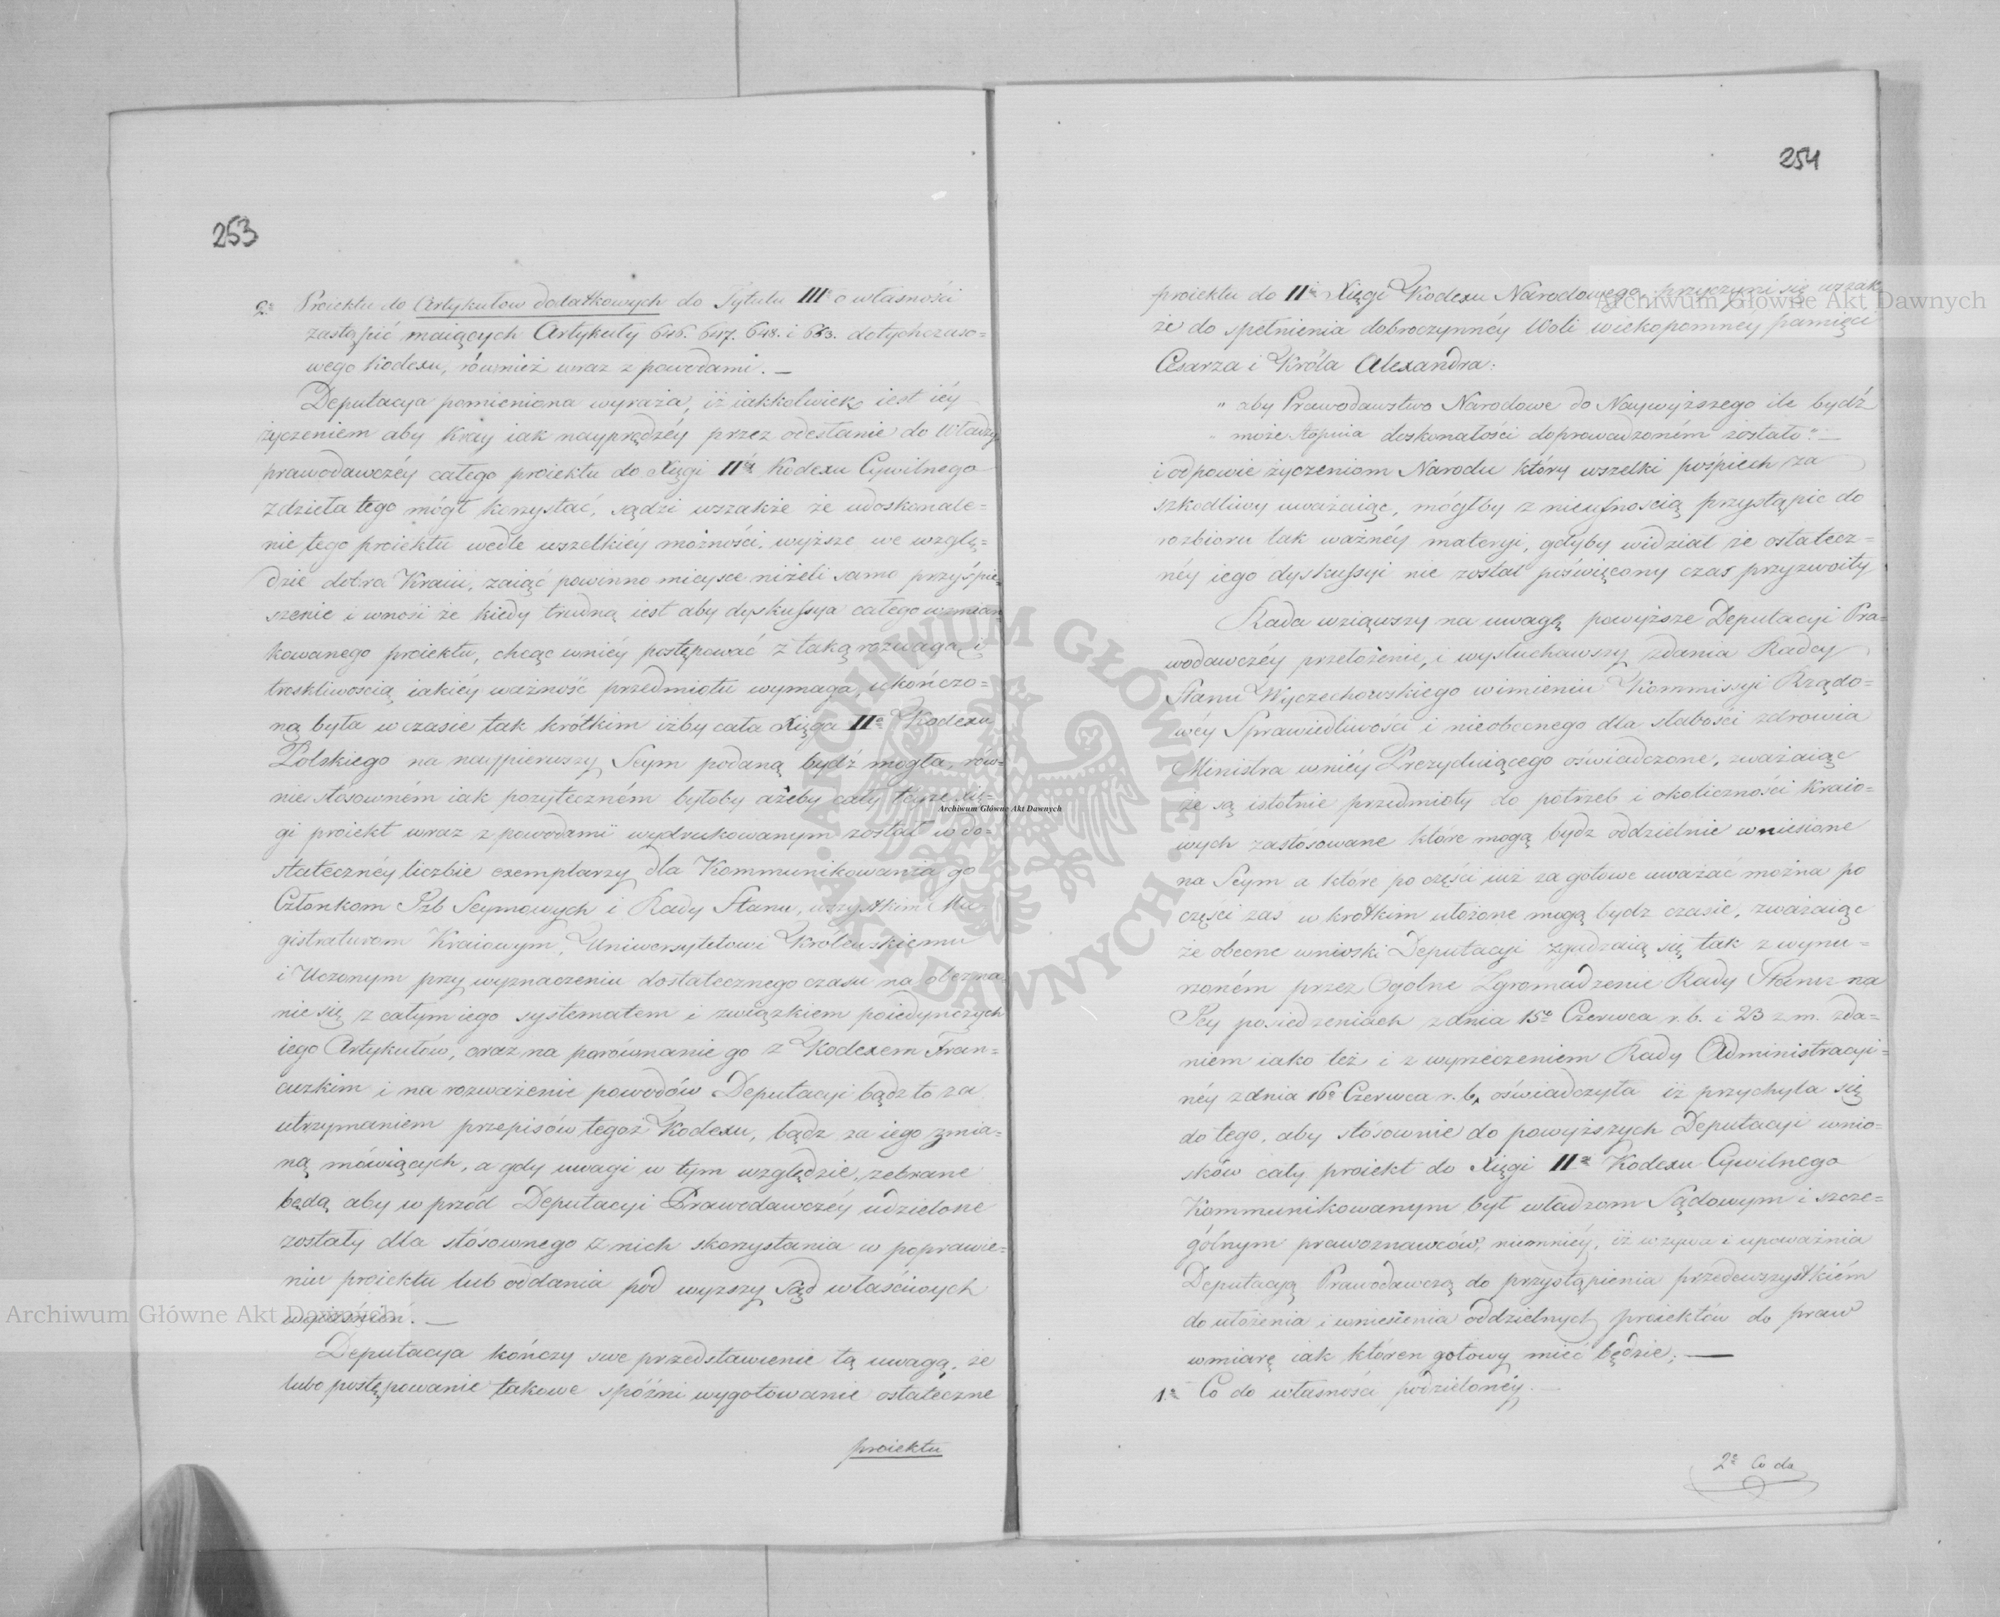 253
2º Proiektu do Artykułow dodatkowych do Tytułu IIIº o własności
zastąpić maiących Artykuły 646. 647. 648. i 653. dotychczaso=
wego Kodexu, również wraz z powodami. —
Deputacya pomieniona wyraża, iż iakkolwiek iest iéy
życzeniem aby Kray iak nayprędzéy przez odesłanie do Władzy
prawodawczéy całego proiektu do Xięgi IIéy Kodexu Cywilnego
z dzieła tego mógł korzystać, sądzi wszakże że udoskonale=
nie tego proiektu wedle wszelkiéy możności, wyższe we wzglę=
dzie dobra Kraiu, zaiąć powinno mieysce niżeli samo przyśpie
szenie i wnosi że kiedy trudną iest aby dyskussya całego wzmian
kowanego proiektu, chcąc w niéy postępować z taką rozwagą i
troskliwością iakiéy ważność przedmiotu wymaga, ukończo=
ną była w czasie tak krótkim iżby cała Xięga IIª Kodexu
Polskiego na naypierwszy Seym podaną bydź mogła, rów=
nie stósowném iak pożyteczném byłoby ażeby cały teyże Xię=
gi proiekt wraz z powodami wydrukowanym został w do=
statecznéy liczbie exemplarzy dla Kommunikowania go
Członkom Izb Seymowych i Rady Stanu, wszystkim Ma
gistraturom Kraiowym, Uniwersytetowi Królewskiemu
i Uczonym przy wyznaczeniu dostatecznego czasu na obezna
nie się z całym iego systematem i związkiem poiedyńczych
iego Artykułów, oraz na porównanie go z Kodexem Fran=
cuzkim i na rozważenie powodów Deputacyi bądz to za
utrzymaniem przepisów tegoż Kodexu, bądz za iego zmia=
ną mówiących, a gdy uwagi w tym względzie zebrane
będą aby w przód Deputacyi Prawodawczéy udzielone
zostały dla stósownego z nich skorzystania w poprawie=
niu proiektu lub oddania pod wyższy sąd właściwych
wyiaśnień. —
Deputacya kończy swe przedstawienie tą uwagą, że
lubo postępowanie takowe spóźni wygotowanie ostateczne
proiektu
254
proiektu do IIéy Xięgi Kodexu Narodowego, przyczyni się wszak
że do spełnienia dobroczynnéy Woli wiekopomnéy pamięci
Cesarza i Króla Alexandra:
" aby Prawodawstwo Narodowe do Naywyższego ile bydź
" może stopnia doskonałości doprowadzoném zostało". —
i odpowie życzeniom Narodu który wszelki pośpiech za
szkodliwy uważaiąc, mógłby z nieufnością przystąpić do
rozbioru tak ważnéy materyi, gdyby widział że ostatecz=
néy iego dyskussyi nie został poświęcony czas przyzwoity
Rada wziąwszy na uwagę powyższe Deputacyi Pra=
wodawczéy przełożenie, i wysłuchawszy zdania Radcy
Stanu Wyczechowskiego w imieniu Kommissyi Rządo=
wéy Sprawiedliwości i nieobecnego dla słabości zdrowia
Ministra w niéy Prezyduiącego oświadczone, zważaiąc
że są istotnie przedmioty do potrzeb i okoliczności Kraio=
wych zastosowane które mogą bydz oddzielnie wniesione
na Seym a które po części iuż za gotowe uważać można po
części zaś w krótkim ułożone mogą bydz czasie, zważaiąc
że obecne wnioski Deputacyi zgadzaią się tak z wynu=
rzoném przez Ogólne Zgromadzenie Rady Stanu na
Jey posiedzeniach z dnia 15º Czerwca r. b. i 23 z. m. zda=
niem iako też i z wyrzeczeniem Rady Administracyi=
néy z dnia 16º Czerwca r. b. oświadczyła iż przychyla się
do tego, aby stósownie do powyższych Deputacyi wnio=
sków cały proiekt do Xięgi IIéy Kodexu Cywilnego
Kommunikowanym był władzom Sądowym i szcze=
gólnym prawoznawców, niemniéy, iż wzywa i upoważnia
Deputacyą Prawodawczą do przystąpienia przedewszystkiém
do ułożenia i wniesienia oddzielnych proiektów do praw
w miarę iak któren gotowy mieć będzie; —
1º Co do własności podzielonéy. —
2º Co do
Archiwum Główne Akt Dawnych
Archiwum Główne Akt Dawnych
Archiwum Główne Akt Dawnych
ARCHIWUM GŁÓWNE AKT DAWNYCH